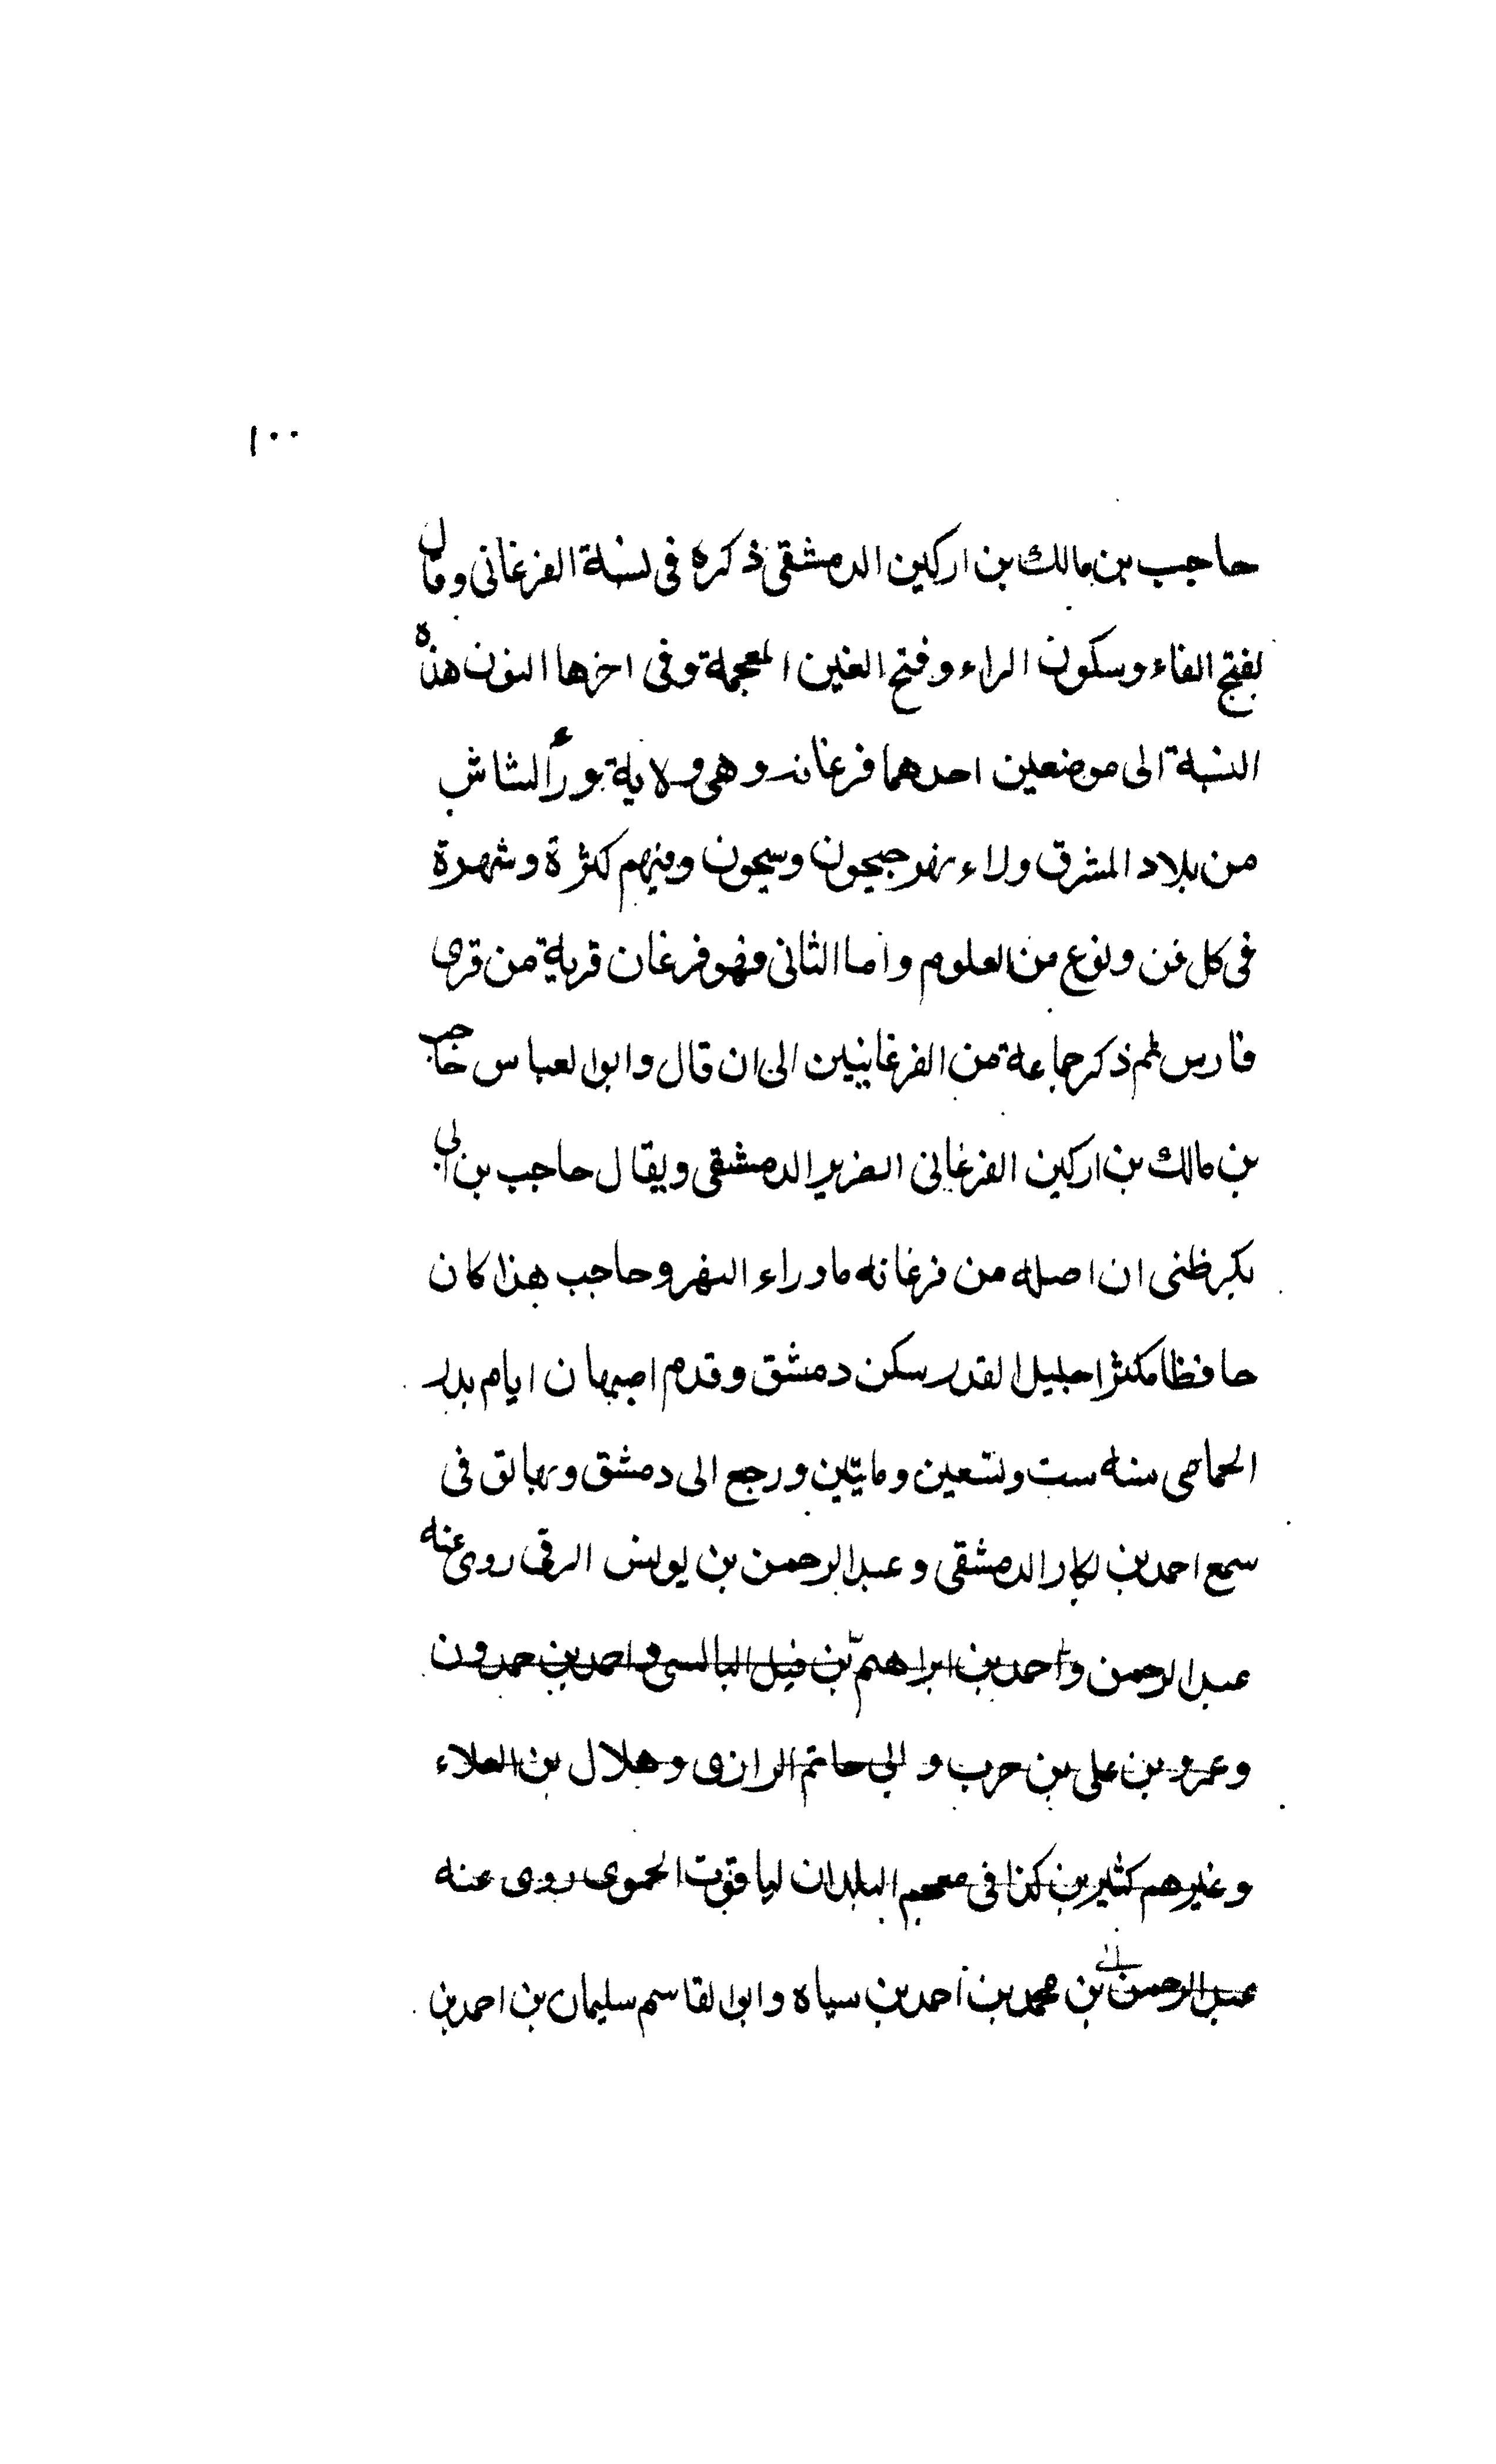 ١٠٠
حاجب بن مالك بن اركين الدمشقى ذكره فى نسبة الفرغانى وقال
بفتح الفاء وسكون الراء وفتح الغين المعجمة وفى اخرها النون هذه
النسبة الى موضعين احدهما فرغانه وهى ولاية وراء الشاش
من بلاد المشرق وراء نهر جيحون وسيحون ومنهم كثرة وشهرة
فى كل فن ونوع من العلوم واما الثانى فهو فرغان قرية من قرى
فارس ثم ذكر جماعة من الفرغانيين الى ان قال وابو العباس حاجب
بن مالك بن اركين الفرغانى الضرير الدمشقى ويقال حاجب بن ابى
بكر ظنى ان اصله من فرغانه ماوراء النهر وحاجب هذا كان
حافظا مكثرا جليل القدر سكن دمشق وقدم اصبهان ايام بدر
الحمامى سنه ست وتسعين ومايتين ورجع الى دمشق وبها توفى
سمع احمد بن بكار الدمشقى وعبد الرحمن بن يونس الرقى روى عنه
عبد الرحمن واحمد بن ابراهيم بن فيل البالسى واحمد بن حمدون
وعمرو بن على بن حرب و ابى حاتم الرازى وهلال بن العلاء
وغيرهم كثيرين كذا فى معجم البلدان لياقوت الحموى روى عنه
عبد الرحمن بن محمد بن احمد بن سياه وابو القاسم سليمان بن احمد بن